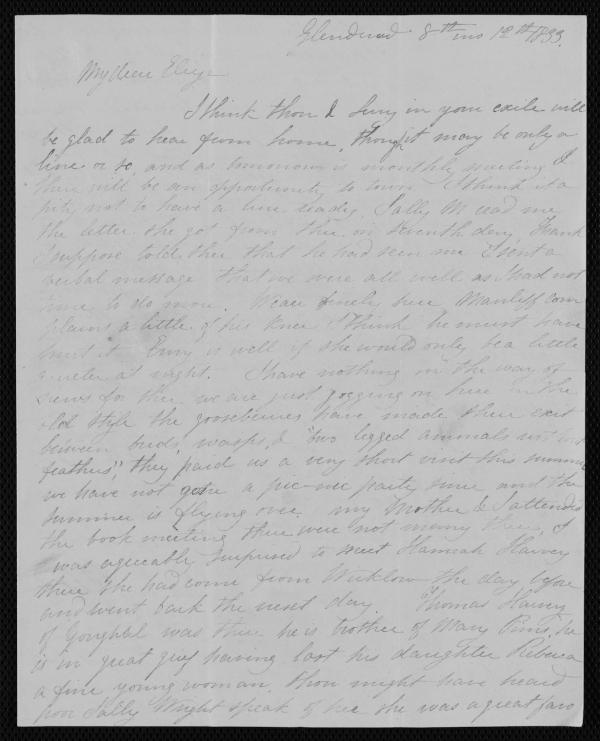 Glendruid 8th mo 12th 1833.
My dear Eliza
I think thou & Lucy in your exile will
be glad to hear from home, though it may be only a
line or so, and as tomorrow is monthly meeting &
there will be an opportunity to town I think it a
pity not to have a line ready, Sally M read me
the letter she got from thee on seventh day, Frank
I suppose told thee that he had seen me I sent a
verbal message that we were all well as I had not
time to do more. We are finely here Manliff com
plains a little of his knee I think he must have
hurt it Emy is well if she would only be a little
quieter at night. I have nothing in the way of
news for thee we are just jogging on here in the
old style the gooseberries have made their exit
between birds, wasps, & "two legged animals without
feathers", they paid us a very short visit this summer
we have not gone a pic-nic party since and the
summer is flying over. my Mother & I attended
the book meeting there were not many there, I
was agreeably surprised to meet Hannah Harvey
there she had come from Wicklow the day before
and went back the next day. Thomas Harvey
of Youghal was there he is brother of Mary Pims, he
is in great grief having lost his daughter Rebecca
a fine young woman, thou might have heard
poor Sally Wright speak of her she was a great favo